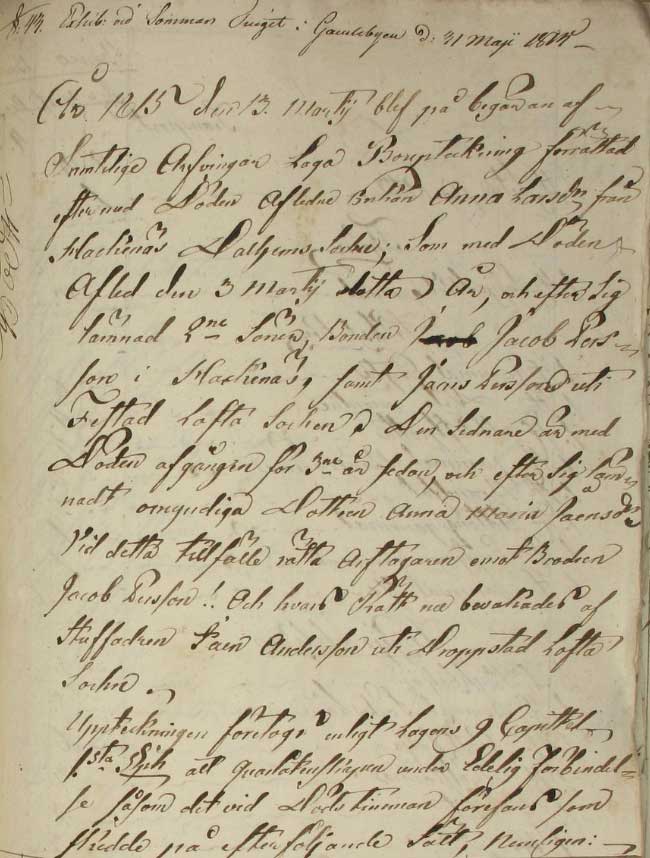 N: 13. Exhib: vid Sommar Tinget i Gamlebyen d: 31 Maji 1815
År 1815 den 13. Martij blef på begäran af
Samtelige Arfvingar Laga Bouptekning förrättad
efter nud Döden Afledne Enkan Anna Larsdr från
Hackenäs Dalhems Sockn; Som med Döden
Afled den 3 Martij detta År, och efter Sig
lämnad 2ne Söner, Bonden Jacob Pers-
son i Hackenäs, samt Jaen Persson uti
Testad Lofta Socken Den Sednare är med
Döden afgången för 3ne år sedan, och efter Sig läm-
nadt omyndiga Dottren Anna Maria Jaensdr
Vid detta tillfälle rätta Arftagaren emot Brodren
Jacob Persson!. Och hvars Rätt nu bevakades af
Stuffadren Jaen Andersson uti Droppstad Lofta
Sockn
Uppteckningen företogs enligt Lagens 9 Capittel
1sta §ph att qvarlåtenskapen under Edelig Förbindel-
se såsom det vid Dödstimman förefans som
skedde på efterföljande Sätt, Nemligen: